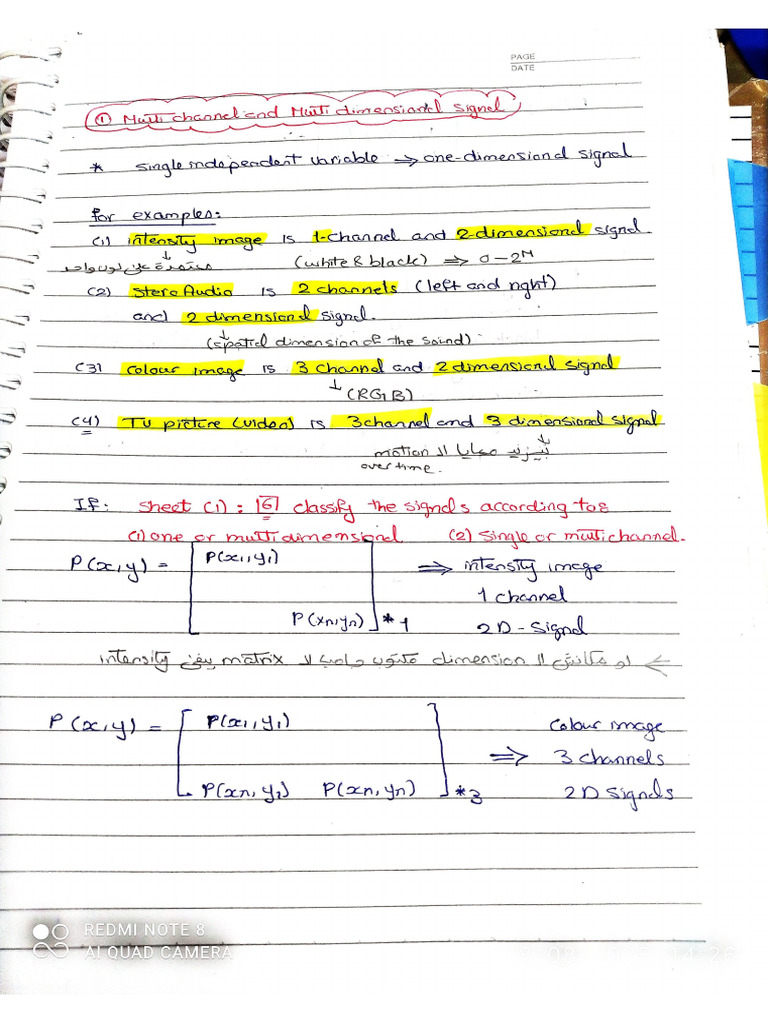 PAGE
DATE
① Multi channel and Multi dimensional signal
* single independent variable → one-dimensional signal
for examples:
(1) intensity image is 1-channel and 2-dimensional signal.
معتمدة على لون واحد (white & black) ⇒ 0-2ᴺ
(2) stereo Audio is 2 channels (left and right)
and 2 dimensional signal.
(spatial dimension of the sound)
(3) colour image is 3 channel and 2 dimensional signal
(RGB)
(4) TV picture (video) is 3 channel and 3 dimensional signal
بيزيد معايا ال motion
over time.
If: sheet (1): 6 classify the signals according to:
(1) one or multi dimensional (2) single or multi channel.
P(x,y) = [P(x₁,y₁) ⇒ intensity image
1 channel
P(xn,yn)] *1 2D-Signal
لو مكانش ال dimension مكتوب جامب ال matrix يبقى intensity
P(x,y) = [P(x₁,y₁) colour image
⇒ 3 channels
P(xn,y₁) P(xn,yn)] *3 2D signals
REDMI NOTE 8
AI QUAD CAMERA
14:26